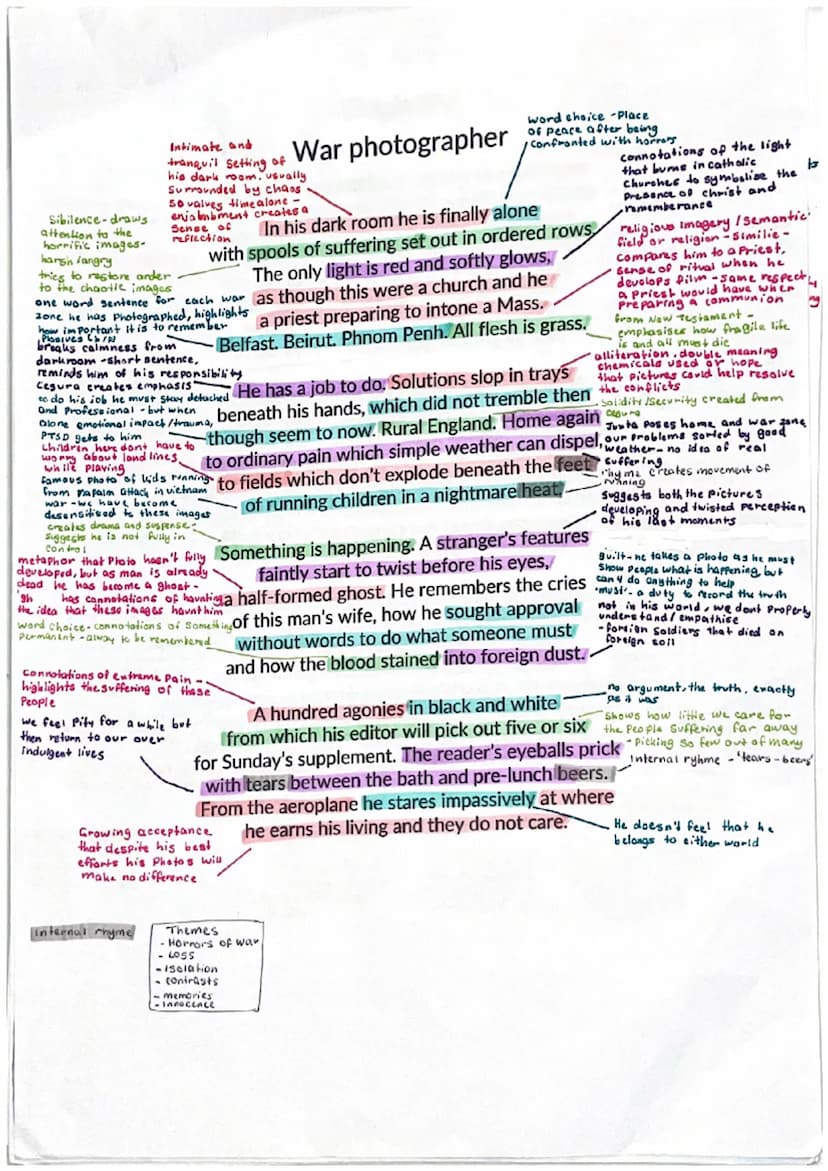 War photographer
word choice - Place
of peace after being
confronted with horrors
Intimate and
tranquil setting of
his dark room. usually
surrounded by chaos
so values time alone -
enjambment creates a
sense of
reflection
connotations of the light
that burns in catholic
churches to symbolise the
presence of christ and
rememberance
Sibilence - draws
attention to the
horrific images -
harsh/angry
tries to restore order
to the chaotic images
religious imagery / semantic
field of religion - similie -
compares him to a Priest.
sense of ritual when he
develops film - same respect
a priest would have when
preparing a communion
In his dark room he is finally alone
with spools of suffering set out in ordered rows.
The only light is red and softly glows,
as though this were a church and he
a priest preparing to intone a Mass.
Belfast. Beirut. Phnom Penh. All flesh is grass.
one word sentence for each war
zone he has photographed, highlights
how important it is to remember
Plosives
from New Testament -
emphasises how fragile life
is and all must die
breaks calmness from
darkroom - short sentence,
reminds him of his responsibility
Cesura creates emphasis
to do his job he must stay detached
and Professional - but when
alone emotional impact/trauma,
PTSD gets to him
alliteration, double meaning
chemicals used or hope
that pictures could help resolve
the conflicts
Solidity/Security created from
cesura
He has a job to do. Solutions slop in trays
beneath his hands, which did not tremble then
though seem to now. Rural England. Home again
to ordinary pain which simple weather can dispel,
to fields which don't explode beneath the feet
of running children in a nightmare heat.
children here dont have to
worry about land lines
while playing
famous photo of kids running
from napalm attack in vietnam
war - we have become
desensitised to these images
Juxta poses home and war zone,
our problems sorted by good
weather - no idea of real
suffering
rhyme creates movement of
running
suggests both the pictures
developing and twisted perception
of his last moments
creates drama and suspense -
suggests he is not fully in
control
Something is happening. A stranger's features
faintly start to twist before his eyes,
a half-formed ghost. He remembers the cries
of this man's wife, how he sought approval
without words to do what someone must
and how the blood stained into foreign dust.
metaphor that Photo hasn't fully
developed, but as man is already
dead he has become a ghost -
'gh has connotations of haunting
the idea that these images haunt him
word choice - connotations of something
permanent - alway to be remembered
guilt - he takes a photo as he must
show people what is happening, but
can't do anything to help
'must' - a duty to record the truth
not in his world, we dont properly
understand/empathise
- foreign soldiers that died on
foreign soil
connotations of extreme pain -
highlights the suffering of these
People
we feel pity for a while but
then return to our over
indulgent lives
A hundred agonies in black and white
from which his editor will pick out five or six
for Sunday's supplement. The reader's eyeballs prick
with tears between the bath and pre-lunch beers.
From the aeroplane he stares impassively at where
he earns his living and they do not care.
no argument, the truth, exactly
as it was
Shows how little we care for
the people suffering far away
- Picking so few out of many
internal ryhme - 'tears - beers'
He doesn't feel that he
belongs to either world
Growing acceptance
that despite his best
efforts his Photos will
make no difference
internal rhyme
Themes
- Horrors of war
- Loss
- isolation
- contrasts
- memories
- innocence